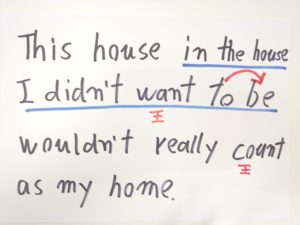 This house in the house
I didn't want to be
王
wouldn't really count
王
as my home.